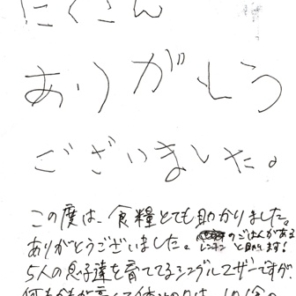 たくさん
ありがとう
ございました。
この度は、食糧とても助かりました。
ありがとうございました。
のごはんがある
と助かります!
5人の息子達を育ててるシングルマザーですが、